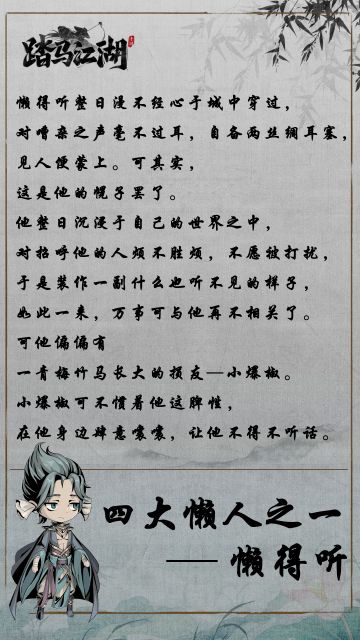 踏马江湖
懒得听整日漫不经心于城中穿过，
对嘈杂之声毫不过耳，自备两丝绸耳塞，
见人便蒙上。可其实，
这是他的幌子罢了。
他整日沉浸于自己的世界之中，
对招呼他的人烦不胜烦，不愿被打扰，
于是装作一副什么也听不见的样子，
如此一来，万事可与他再不相关了。
可他偏偏有
一青梅竹马长大的损友—小爆椒。
小爆椒可不惯着他这脾性，
在他身边肆意嚷嚷，让他不得不听话。
四大懒人之一
——懒得听